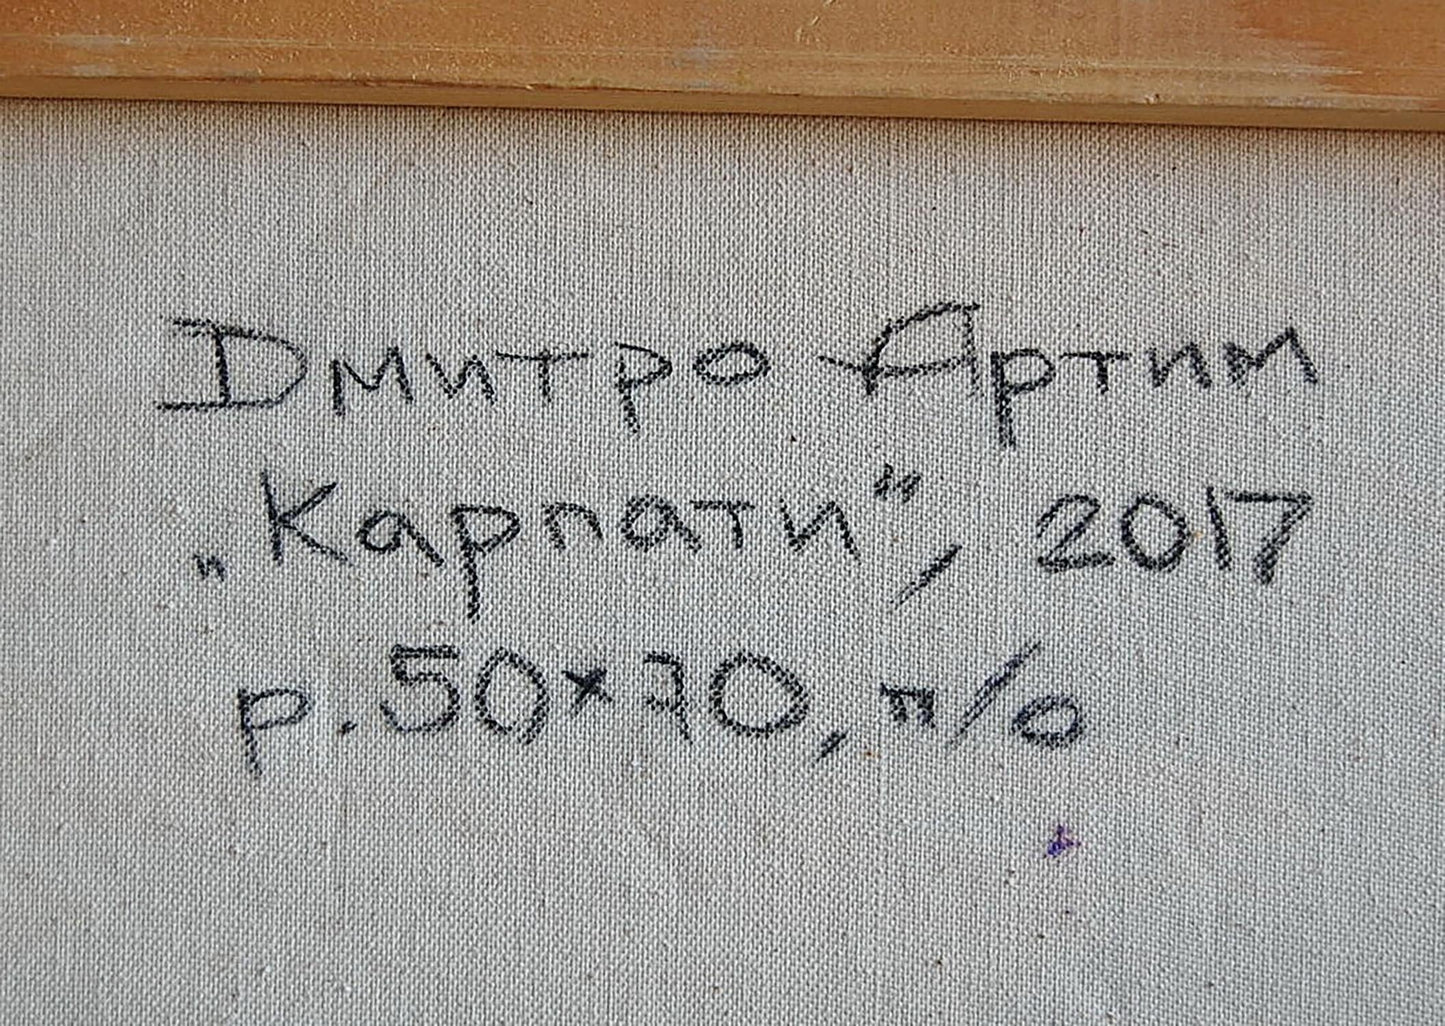 Дмитро Артим
„Карпати”, 2017
р. 50×70, п/о